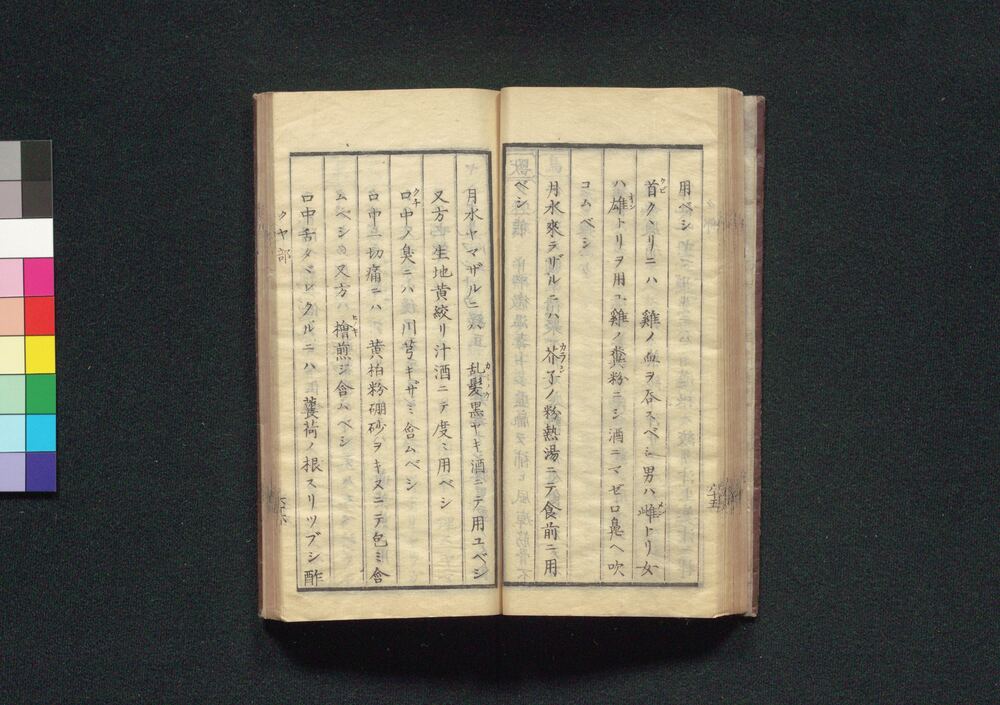 用ベシ
首クヽリニハ 雞ノ血ヲ呑スベシ男ハ雌トリ女
ハ雄トリヲ用ユ雞ノ糞粉ニシ酒ニマゼ口鼻ヘ吹
コムベシ
月水來ラザルニハ 芥子ノ粉熱湯ニテ食前ニ用
ベシ
月水ヤマザルニハ 乱髪墨ヤキ酒ニテ用ユベシ
又方 生地黄絞リ汁酒ニテ度々用ベシ
口中ノ臭ニハ 川芎キザミ含ムベシ
口中一切痛ニハ 黄柏粉硼砂ヲキヌニテ包ミ含
ムベシ 又方ハ 檜煎ジ含ムベシ
口中舌タヾレクルニハ 蘘荷ノ根スリツブシ酢
クヤ部
六十六
六十五